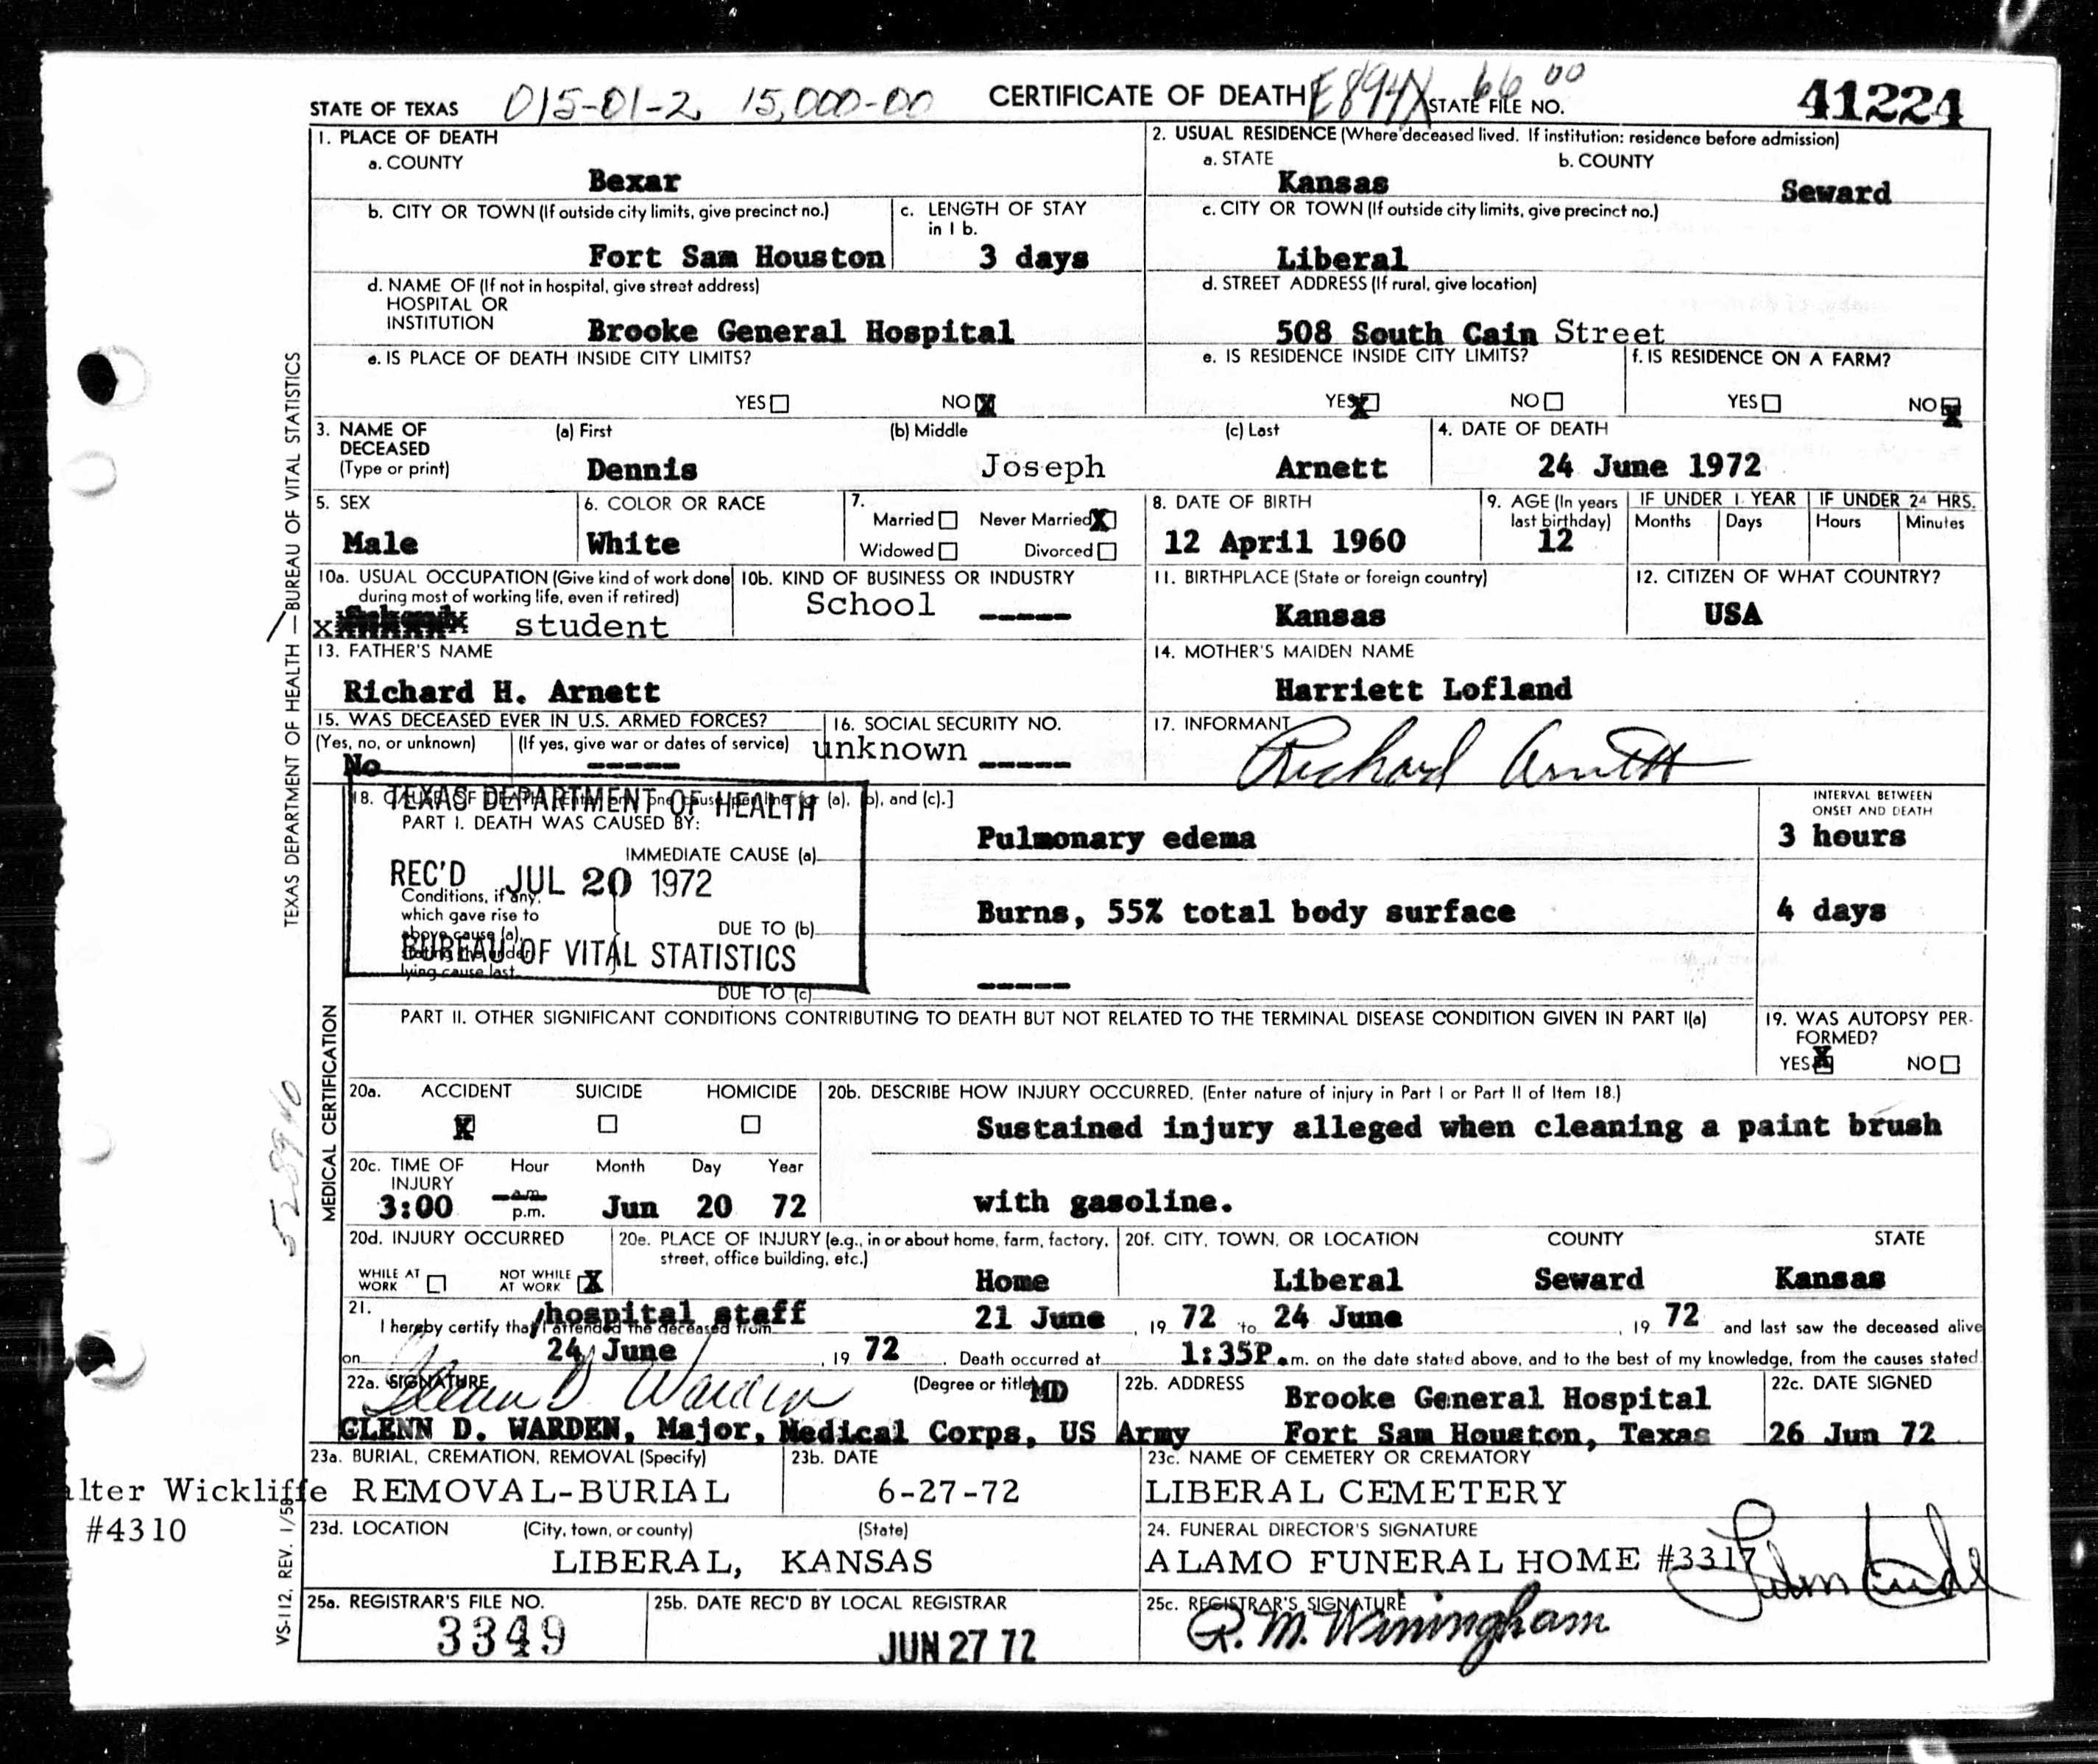 STATE OF TEXAS 015-01-2 15,000-00 CERTIFICATE OF DEATH E894X STATE FILE NO. 66 00 41224
1. PLACE OF DEATH
a. COUNTY
Bexar
2. USUAL RESIDENCE (Where deceased lived. If institution: residence before admission)
a. STATE b. COUNTY
Kansas Seward
b. CITY OR TOWN (If outside city limits, give precinct no.)
Fort Sam Houston
c. LENGTH OF STAY
in 1 b.
3 days
c. CITY OR TOWN (If outside city limits, give precinct no.)
Liberal
d. NAME OF (If not in hospital, give street address)
HOSPITAL OR
INSTITUTION
Brooke General Hospital
d. STREET ADDRESS (If rural, give location)
508 South Cain Street
e. IS PLACE OF DEATH INSIDE CITY LIMITS?
YES NO X
e. IS RESIDENCE INSIDE CITY LIMITS?
YES X NO
f. IS RESIDENCE ON A FARM?
YES NO X
3. NAME OF
DECEASED
(Type or print)
(a) First (b) Middle (c) Last
Dennis Joseph Arnett
4. DATE OF DEATH
24 June 1972
5. SEX
Male
6. COLOR OR RACE
White
7.
Married Never Married X
Widowed Divorced
8. DATE OF BIRTH
12 April 1960
9. AGE (In years
last birthday)
12
IF UNDER 1 YEAR IF UNDER 24 HRS.
Months Days Hours Minutes
10a. USUAL OCCUPATION (Give kind of work done
during most of working life, even if retired)
student
10b. KIND OF BUSINESS OR INDUSTRY
School -----
11. BIRTHPLACE (State or foreign country)
Kansas
12. CITIZEN OF WHAT COUNTRY?
USA
13. FATHER'S NAME
Richard H. Arnett
14. MOTHER'S MAIDEN NAME
Harriett Lofland
15. WAS DECEASED EVER IN U.S. ARMED FORCES?
(Yes, no, or unknown) (If yes, give war or dates of service)
No -----
16. SOCIAL SECURITY NO.
unknown -----
17. INFORMANT
Richard Arnett
18. (a), (b), and (c).]
TEXAS DEPARTMENT OF HEALTH
PART I. DEATH WAS CAUSED BY:
IMMEDIATE CAUSE (a)
Pulmonary edema
INTERVAL BETWEEN
ONSET AND DEATH
3 hours
REC'D JUL 20 1972
Conditions, if any,
which gave rise to
above cause (a),
lying cause last.
BUREAU OF VITAL STATISTICS
DUE TO (b)
Burns, 55% total body surface
4 days
DUE TO (c)
-----
PART II. OTHER SIGNIFICANT CONDITIONS CONTRIBUTING TO DEATH BUT NOT RELATED TO THE TERMINAL DISEASE CONDITION GIVEN IN PART I(a)
19. WAS AUTOPSY PER-
FORMED?
YES X NO
20a. ACCIDENT SUICIDE HOMICIDE
X
20b. DESCRIBE HOW INJURY OCCURRED. (Enter nature of injury in Part I or Part II of Item 18.)
Sustained injury alleged when cleaning a paint brush
with gasoline.
20c. TIME OF
INJURY
Hour Month Day Year
3:00 a.m.
p.m. Jun 20 72
20d. INJURY OCCURRED
WHILE AT
WORK
NOT WHILE
AT WORK X
20e. PLACE OF INJURY (e.g., in or about home, farm, factory,
street, office building, etc.)
Home
20f. CITY, TOWN, OR LOCATION COUNTY STATE
Liberal Seward Kansas
21.
/hospital staff
I hereby certify that I attended the deceased from 21 June, 19 72 to 24 June, 19 72 and last saw the deceased alive
on 24 June, 19 72. Death occurred at 1:35P.m. on the date stated above, and to the best of my knowledge, from the causes stated.
22a. SIGNATURE
Glenn D. Warden
(Degree or title) MD
GLENN D. WARDEN, Major, Medical Corps, US Army
22b. ADDRESS
Brooke General Hospital
Fort Sam Houston, Texas
22c. DATE SIGNED
26 Jun 72
23a. BURIAL, CREMATION, REMOVAL (Specify)
REMOVAL-BURIAL
23b. DATE
6-27-72
23c. NAME OF CEMETERY OR CREMATORY
LIBERAL CEMETERY
lter Wickliffe
#4310
23d. LOCATION (City, town, or county) (State)
LIBERAL, KANSAS
24. FUNERAL DIRECTOR'S SIGNATURE
ALAMO FUNERAL HOME #3317
25a. REGISTRAR'S FILE NO.
3349
25b. DATE REC'D BY LOCAL REGISTRAR
JUN 27 72
25c. REGISTRAR'S SIGNATURE
R. M. Winingham
TEXAS DEPARTMENT OF HEALTH — BUREAU OF VITAL STATISTICS
MEDICAL CERTIFICATION
VS-112, REV. 1/58